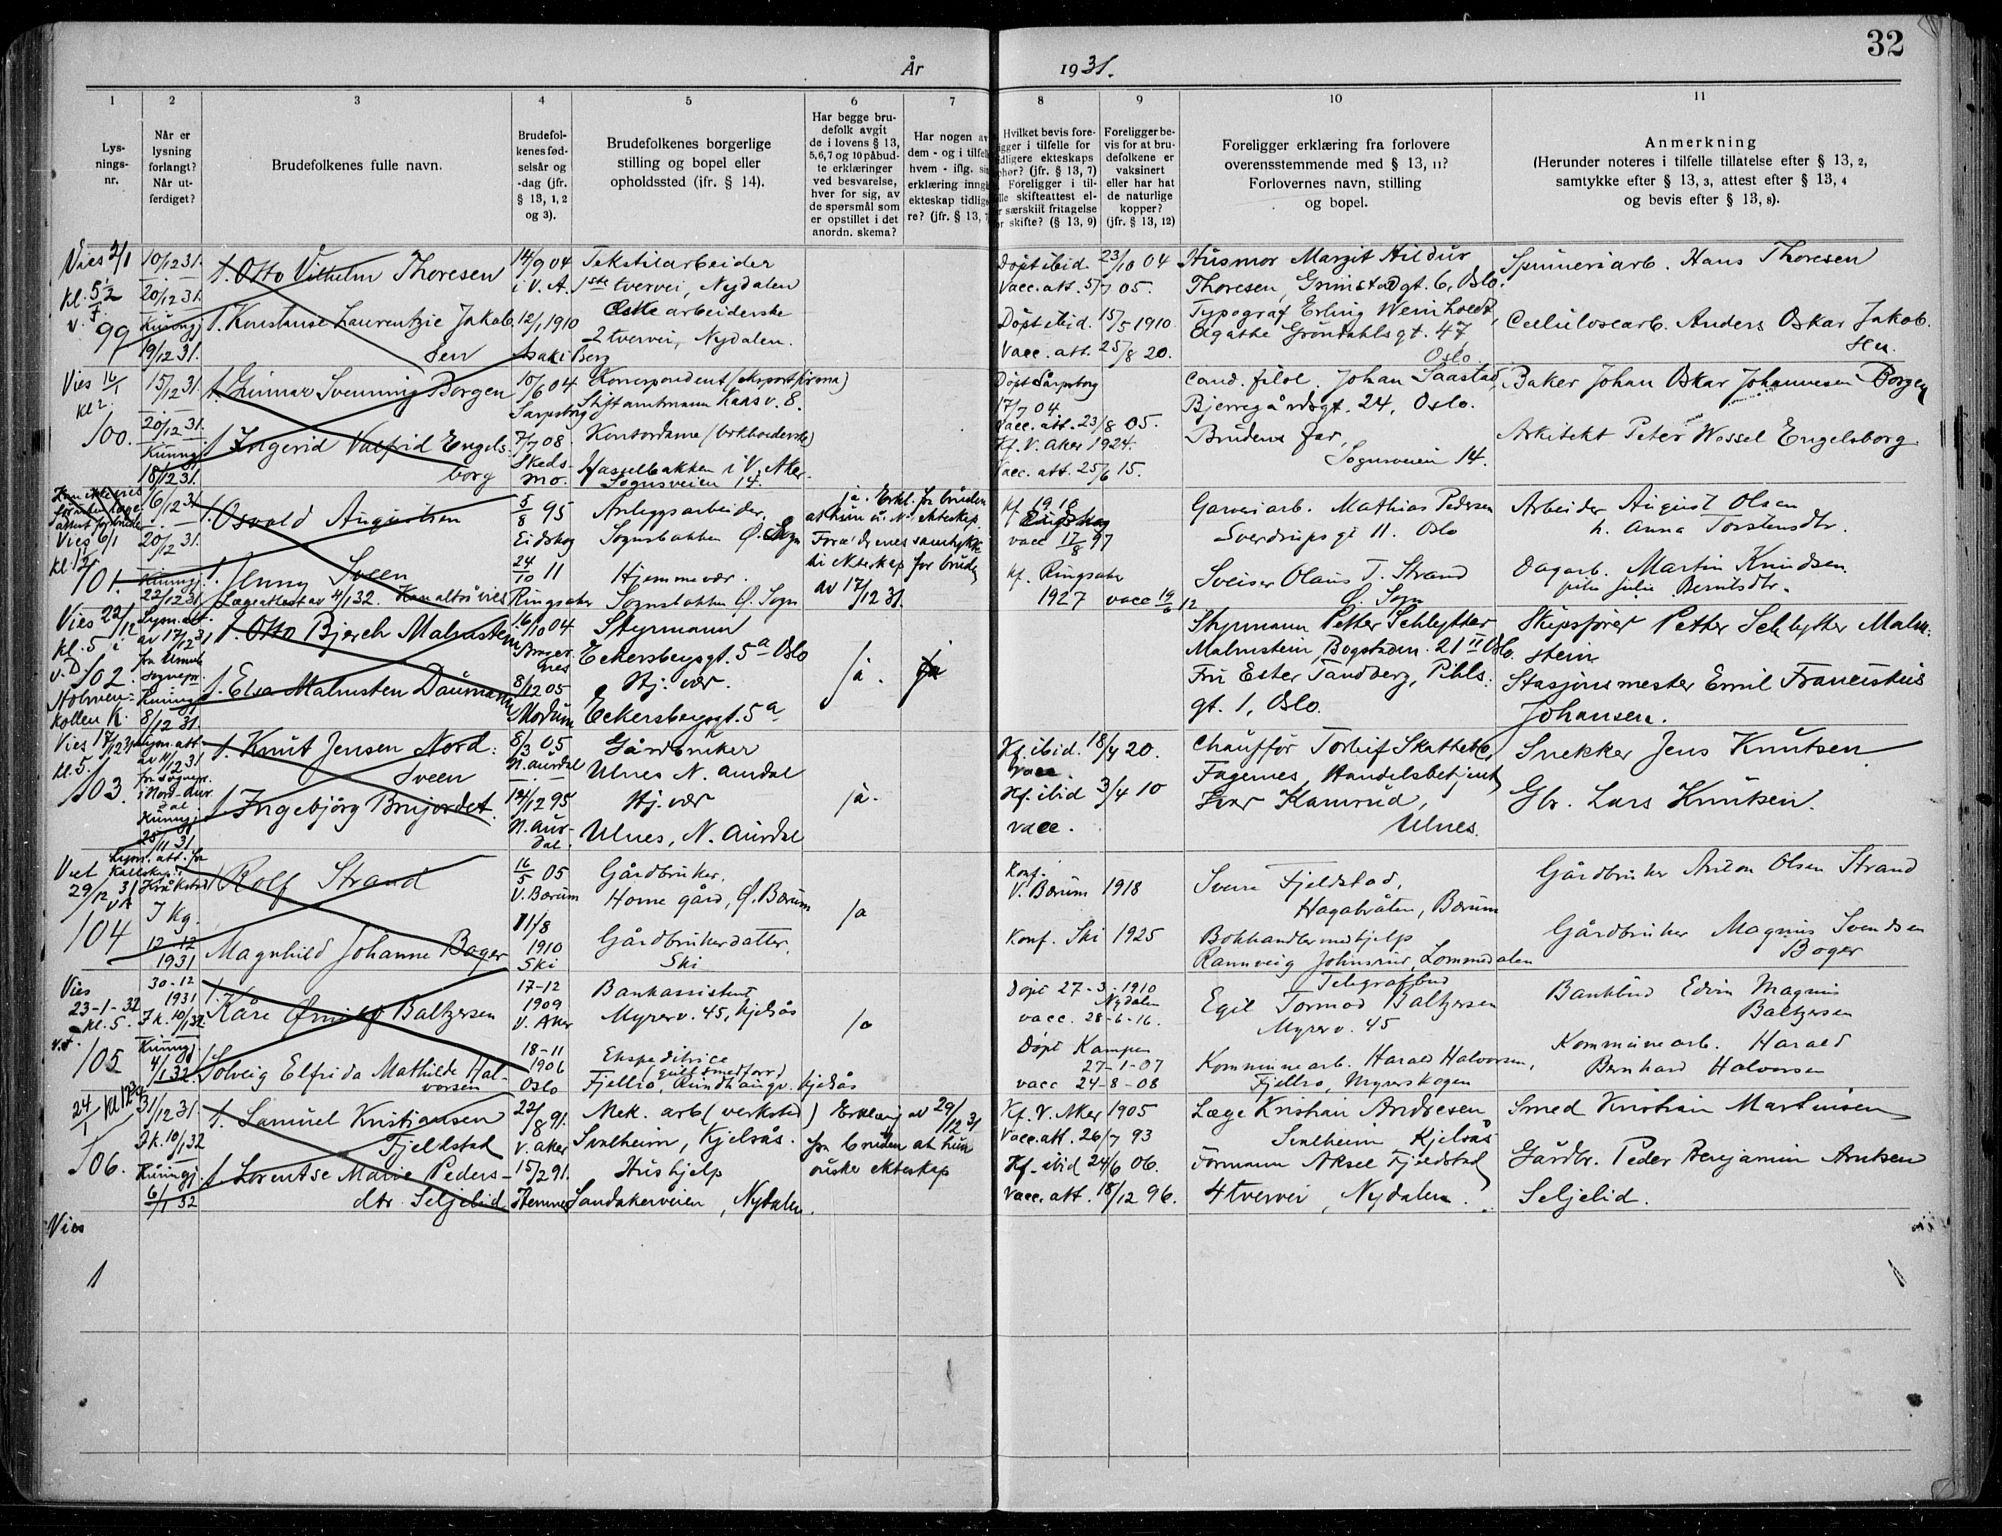 32
År 1931.
1 2 3 4 5 6 7 8 9 10 11
Lys-
nings-
nr.
Når er
lysning
forlangt?
Når ut-
ferdiget?
Brudefolkenes fulle navn.
Brudefol-
kenes fød-
selsår og
-dag (jfr.
§ 13, 1, 2
og 3).
Brudefolkenes borgerlige
stilling og bopel eller
opholdssted (jfr. § 14).
Har begge bru-
defolk avgit
de i lovens § 13,
5,6,7 og 10 påbud-
te erklæringer
ved besvarelse,
hver for sig, av
de spørsmål som
er opstillet i det
anordn. skema?
Har nogen av
dem - og i tilfelle
hvem - iflg. sin
erklæring inngå
ekteskap tidlige-
re? (jfr. § 13, 7
Hvilket bevis fore-
ligger i tilfelle for
tidligere ekteskaps
ophør? (jfr. § 13, 7)
Foreligger i til-
felle skifteattest el-
ler særskilt fritagelse
for skifte? (§ 13, 9)
Foreligger be-
vis for at bru-
defolkene er
vaksinert
eller har hat
de naturlige
kopper?
(jfr. § 13, 12)
Foreligger erklæring fra forlovere
overensstemmende med § 13, 11?
Forlovernes navn, stilling
og bopel.
Anmerkning
(Herunder noteres i tilfelle tillatelse efter § 13, 2,
samtykke efter § 13, 3, attest efter § 13, 4
og bevis efter § 13, 8).
Vies 2/1
kl. 5 1/2
99
10/12 31.
20/12 31.
19/12 31.
Otto Vilhelm Thoresen
Konstanse Laurentzie Jakob
sen
14/9 04
i V. A.
12/1 1910
Tekstilarbeider
1ste tvervei, Nydalen
arbeiderske
2 tvervei, Nydalen.
Døpt ibid. 23/10 04
Vacc. att. 5/7 05.
Døpt ibid. 15/5 1910.
Vacc. att. 25/8 20.
Husmor Margit Hildur
Thoresen, Grimstadgt. 6, Oslo.
Typograf Erling Weinholdt,
Agathe Grøndahlsgt. 47
Oslo.
Spinneriarb. Hans Thoresen
Cellulosearb. Anders Oskar Jakob.
sen.
Vies 16/1
kl 2.
100.
15/12 31.
20/12 31.
18/12 31.
Gunnar Svenning Borgen
Ingerid Valfrid Engels-
borg
10/6 04
Sarpsborg
7/7 08.
Skeds-
mo.
Korrespondent (eksportfirma)
Stiftamtmann Kaas v. 8.
Kontordame (bokholderske)
Hasselbakken i V. Aker.
Sognsveien 14.
Døpt Sarpsborg
17/7 04
Vacc. att. 23/8 05.
Kf. V. Aker 1924.
Vacc. att. 25/6 15.
cand. filol. Johan Saastad,
Bjerregårdsgt. 24, Oslo.
Brudens far,
Sognsveien 14.
Baker Johan Oskar Johannesen Borgen
Arkitekt Peter Wessel Engelsborg
Vies 6/1
kl 12
101.
16/12 31
20/12 31.
22/12 31.
Osvald Augustsen
Jenny Sveen
Lægeattest av 4/1 32. Kan altså vies
5/8 95
Eidskog
24/10 11
Ringsaker
Anleggsarbeider,
Sognsbakken Ø. Sogn
Hjemmevær.
Sognsbakken Ø. Sogn
ja. Erkl. fr bruden
at hun ø. N. ekteskap
Foreldrenes samtykke
til ekteskap for bruden
av 17/12 31.
kf. 1910
Eidskog
vacc 17/8 97
kf. Ringsaker
1927 vacc 19/6 12
Garveriarb. Mathias Pedersen
Sverdrupsgt 11. Oslo
Sveiser Olaus T. Strand
Ø. Sogn
Arbeider August Olsen
h. Anna Torstensdtr.
Dagarb. Martin Knudsen
Julie Berntsdtr.
Vies 22/12
kl. 5 i
V. D. 102.
Holmen-
kollen K.
Lysn. att.
av 17/12 31
8/12 31.
Otto Bjerch Malmsten
Elsa Malmsten Daumann
16/10 04
Brager-
nes
8/12 05
Modum
Styrmann
Eckersbergsgt. 5a Oslo
Hj. vær.
Eckersbergsgt. 5a
ja.
Styrmann Petter Schlytter
Malmstein, Bogstadvn. 21 II Oslo.
Fru Ester Tandberg, Pihls.
gt. 1, Oslo.
Skipsfører Petter Schlytter Malm-
stein
Stasjonsmester Emil Franciskus
Johansen.
Vies 17/12 31
kl. 5
103.
Lysn. att.
av 11/12 31
fr. sognepr.
i Nord-Aur
dal.
25/11 31
Knut Jensen Nord-
Sveen
Ingebjörg Brujordet.
8/3 05
N. Aurdal
14/12 95
N. Aur-
dal.
Gårdbruker
Ulnes N. Aurdal
Hj. vær
Ulnes, N. Aurdal
ja.
Kf. ibid. 18/4 20.
vacc.
Kf. ibid 3/4 10
vacc.
Chauffør Torleif Skattebo,
Fagernes, Handelsbetjent
Iver Kamrud,
Ulnes.
Snekker Jens Knutsen
Gbr. Lars Knutsen.
Viet
29/12 31
VA
104
Lysn. att. fra
Kråkstad
12-12
1931
Rolf Strand
Magnhild Johanne Boger
16/5 05
V. Bærum
11/8
1910
Ski
Gårdbruker,
Horne gård, Ø. Bærum
Gårdbrukerdatter,
Ski
ja
Konf.
V. Bærum 1918
Konf. Ski 1925
Sverre Fjeldstad,
Hagabråten, Bærum
Bokhandlermedhjelp
Rannveig Johnsrud, Lommedalen
Gårdbruker Anton Olsen Strand
Gårdbruker Magnus Svendsen
Boger
Vies
23-1-32
kl. 5.
105
30-12
1931
J. k. 10/1 32.
4/1 32.
Kåre Baltzersen
Solveig Elfrida Mathilde Hal-
vorsen
17-12
1909
V. Aker
18-11
1906
Oslo
Bankassistent
Myrerv. 45, Kjelsås
Ekspeditrice
(gullsmedforr.)
Fjellro, Rundhaugv. Kjelsås
ja
Døpt 27-3-1910
Nydalen
vacc. 28-6-16.
Døpt Kampen
27-1-07
vacc 24-8-08
Telegrafbud
Egil Tormod Baltzersen
Myrerv. 45
Kommunearb. Harald Halvorsen,
Fjellro, Myrerskogen
Bankbud Edvin Magnus
Baltzersen
Kommunearb. Harald
Bernhard Halvorsen
24/1
106.
31/12 31.
J. k. 10/1 32
6/1 32
Samuel Kristiansen
Fjeldstad
Lorentse Marie Peders-
dtr. Seljelid
22/8 91.
V. Aker
15/2 91.
Mek. arb (verksted)
Solheim, Kjelsås.
Hushjelp
Sandakerveien, Nydalen.
Erklæring av 29/12 31
fra bruden at hun
ønsker ekteskap
Kf. V. Aker 1905
Vacc. att. 26/7 93
Kf. ibid 24/6 06.
Vacc. att. 18/12 96.
Læge Kristian Andresen
Solheim Kjelsås
Formann Aksel Fjeldstad
4 tvervei, Nydalen.
Smed Kristian Martinisen
Gårdbr. Peder Benjamin Arntsen
Seljelid.
Vies
1